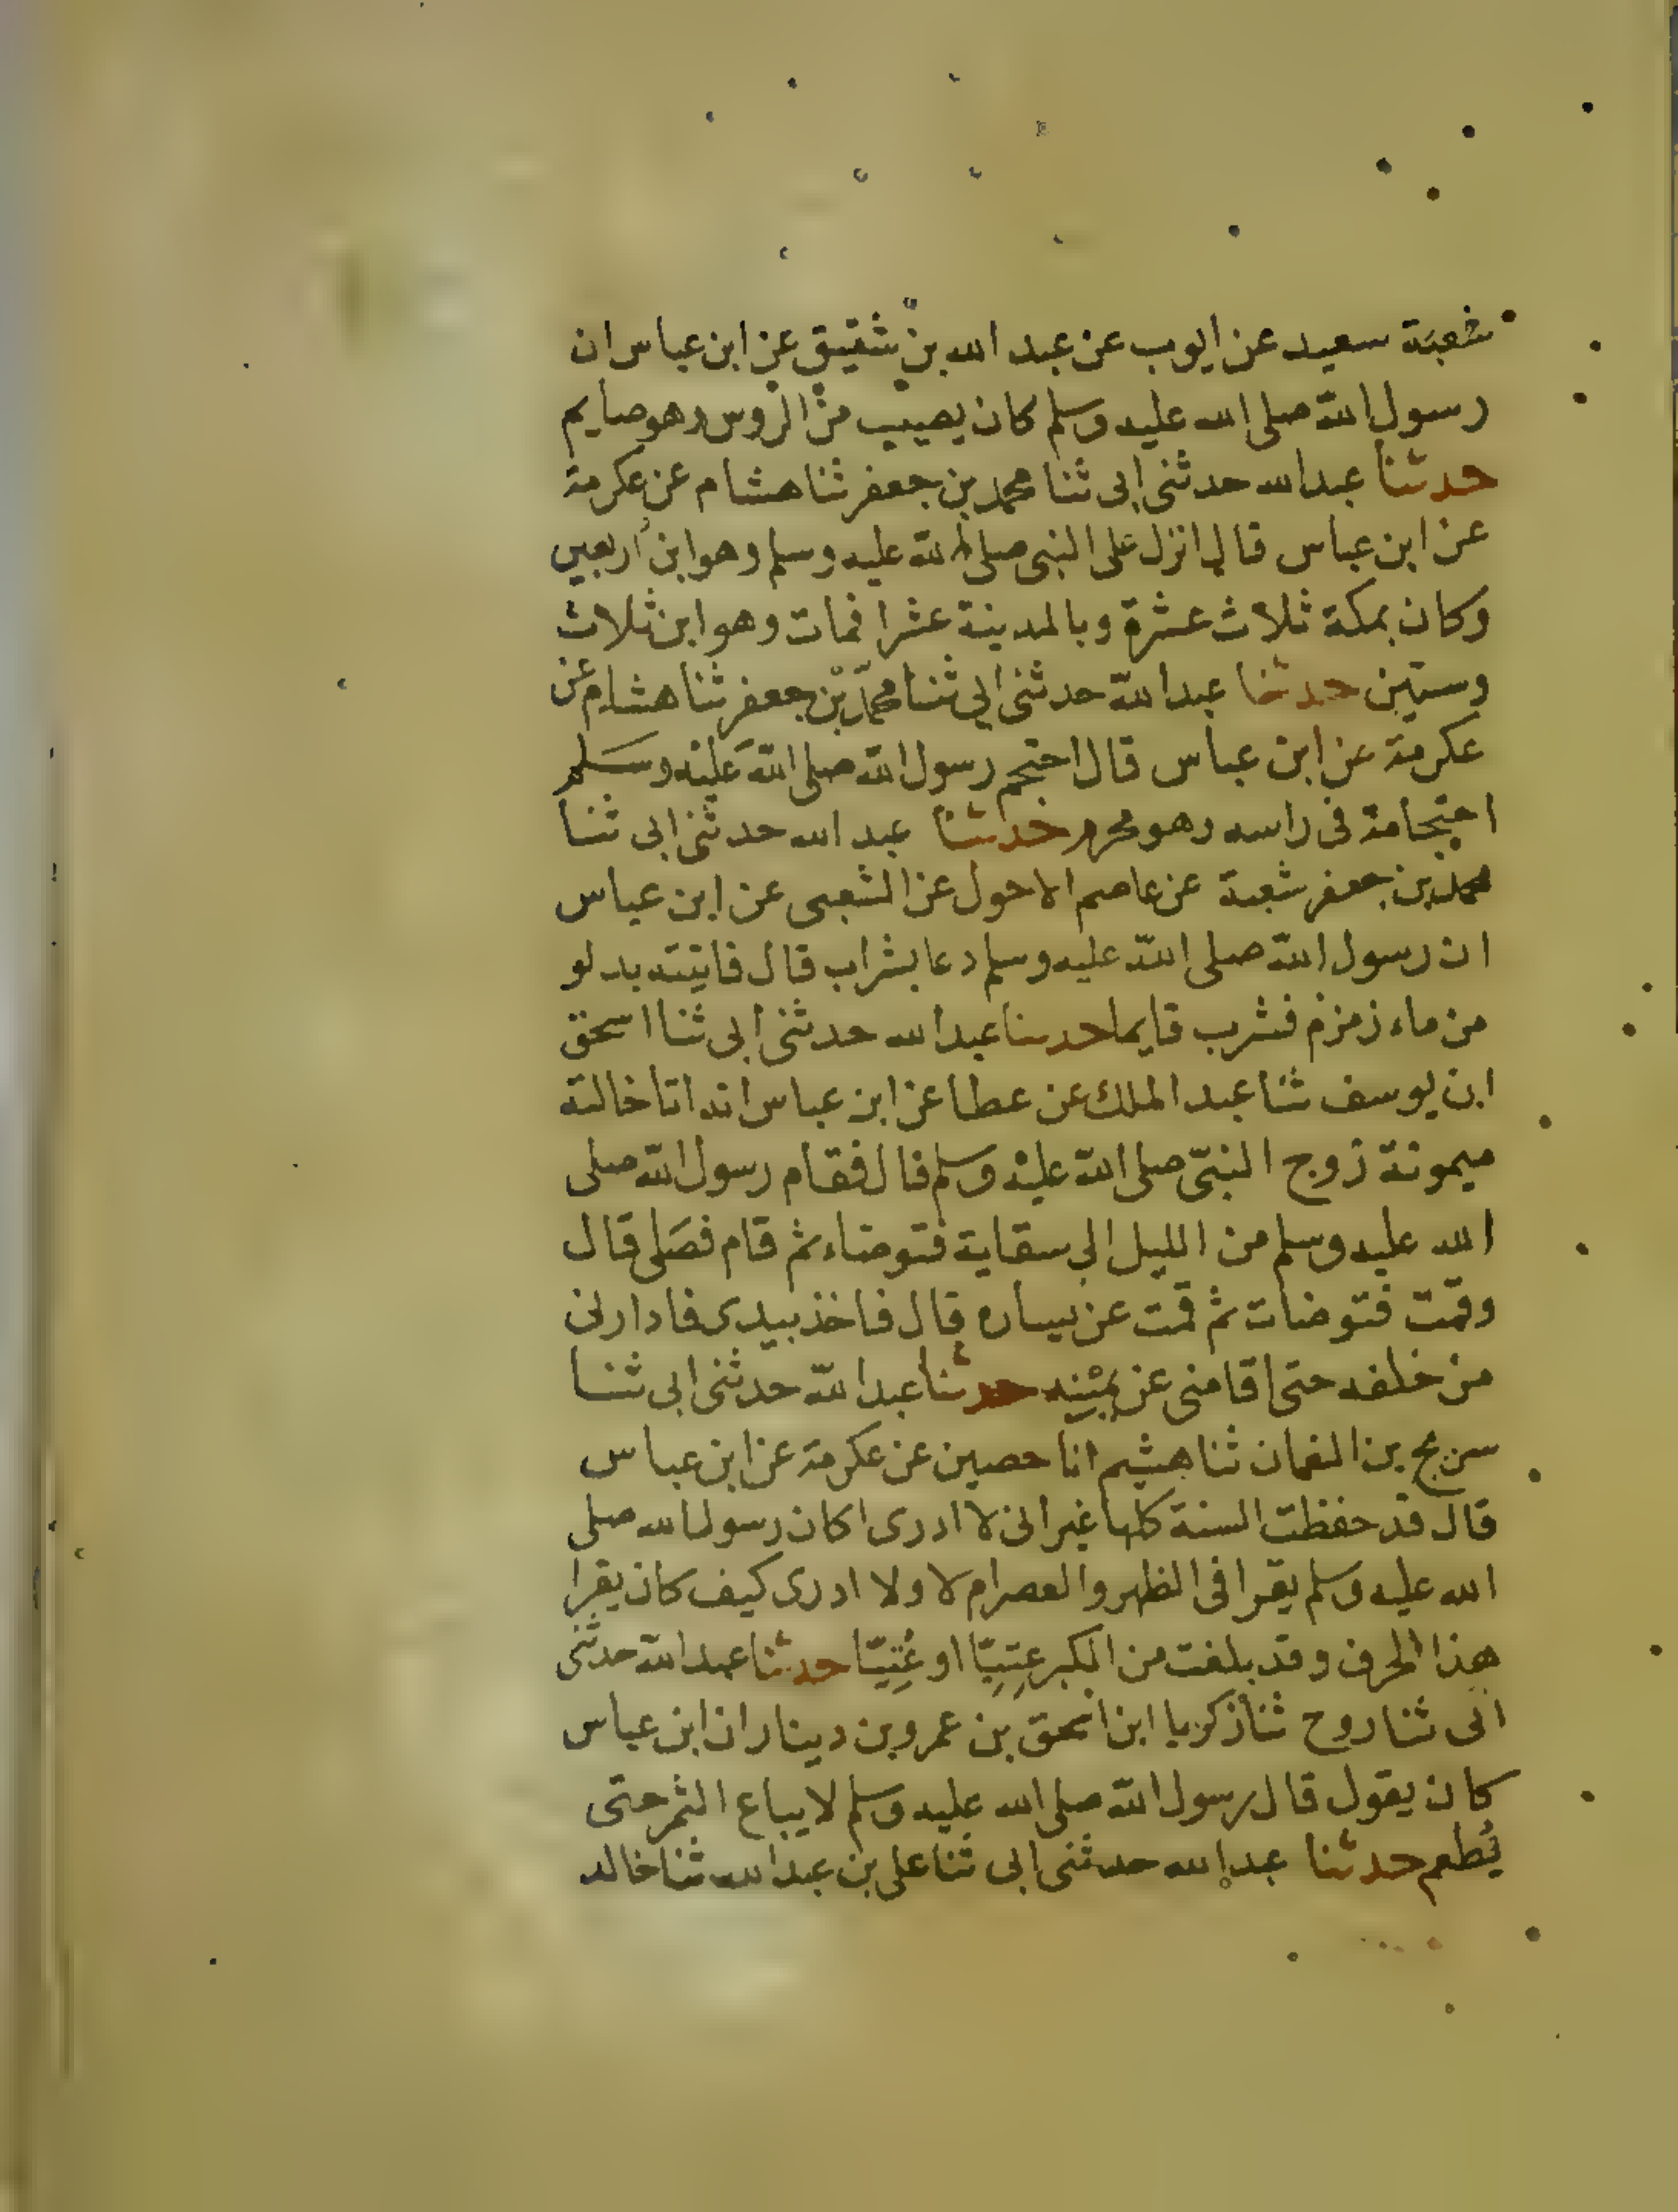 شعبة سعيد عن ايوب عن عبد الله بن شقيق عن ابن عباس ان
رسول الله صلى الله عليه وسلم كان يصيب من الروس وهو صايم
حدثنا عبد الله حدثني ابي ثنا محمد بن جعفر ثنا هشام عن عكرمة
عن ابن عباس قال انزل على النبي صلى الله عليه وسلم وهو ابن اربعين
وكان بمكة ثلاث عشرة وبالمدينة عشرا فمات وهو ابن ثلاث
وستين حدثنا عبد الله حدثني ابي ثنا محمد بن جعفر ثنا هشام عن
عكرمة عن ابن عباس قال احتجم رسول الله صلى الله عليه وسلم
احتجامة في راسه وهو محرم حدثنا عبد الله حدثني ابي ثنا
محمد بن جعفر شعبة عن عاصم الاحول عن الشعبي عن ابن عباس
ان رسول الله صلى الله عليه وسلم دعا بشراب قال فاتيته بدلو
من ماء زمزم فشرب قايما حدثنا عبد الله حدثني ابي ثنا اسحق
ابن يوسف ثنا عبد الملك عن عطا عن ابن عباس انه اتا خالته
ميمونة زوج النبيّ صلى الله عليه وسلم قال فقام رسول الله صلى
الله عليه وسلم من الليل الى سقاية فتوضاء ثم قام فصَلى قال
وقمت فتوضات ثم قمت عن يساره قال فاخذ بيدى فادارنى
من خلفه حتى اقامنى عن يمينه حدثنا عبد الله حدثنى ابى ثنا
سريج بن النعمان ثنا هشيم انا حصين عن عكرمة عن ابن عباس
قال قد حفظت السنة كلها غير انى لا ادرى اكان رسول الله صلى
الله عليه وسلم يقرا فى الظهر والعصر ام لا ولا ادرى كيف كان يقرا
هذا الحرف وقد بلغت من الكبر عِتِيًّا او عُتِيًّا حدثنا عبد الله حدثنى
ابى ثنا روح ثنا زكريا ابن اسحق بن عمرو بن دينار ان ابن عباس
كان يقول قال رسول الله صلى الله عليه وسلم لا يباع الثمر حتى
يُطعم حدثنا عبد الله حدثنى ابى ثنا على بن عبد الله ثنا خالد